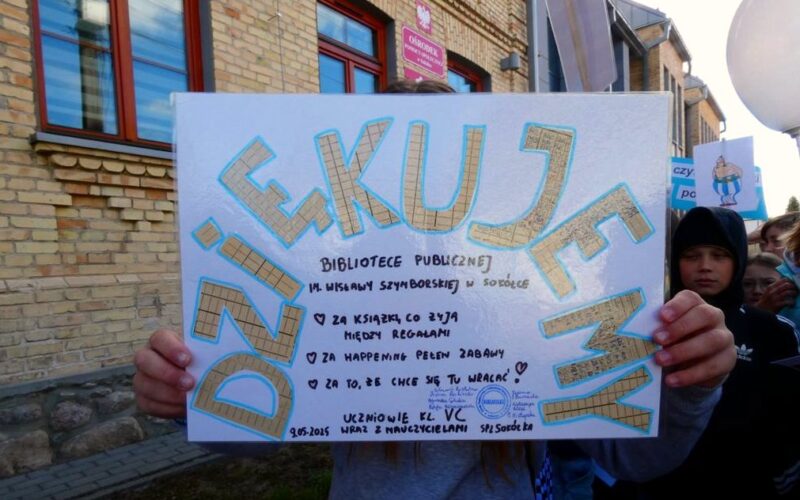 OŚRODEK
POMOCY SPOŁECZNEJ
DZIĘKUJEMY
BIBLIOTECE PUBLICZNEJ
IM. WISŁAWY SZYMBORSKIEJ W SOKÓŁCE
♡ ZA KSIĄŻKI, CO ŻYJĄ
MIĘDZY REGAŁAMI
♡ ZA HAPPENING PEŁEN ZABAWY
♡ ZA TO, ŻE CHCE SIĘ TU WRACAĆ!
UCZNIOWIE KL. VC
9.05.2025 WRAZ Z NAUCZYCIELAMI SP2 SOKÓŁKA
czy
po